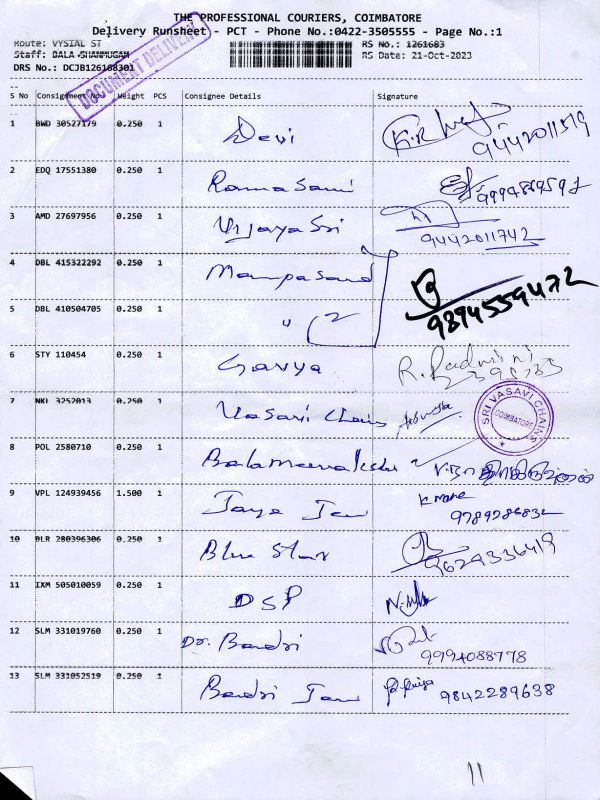 THE PROFESSIONAL COURIERS, COIMBATORE
Delivery Runsheet - PCT - Phone No.:0422-3505555 - Page No.:1
Route: VYSIAL ST RS No.: 1261683
Staff: BALA SHANMUGAM RS Date: 21-Oct-2023
DRS No.: DCJB126168301
DOCUMENT DELIVERY
S No Consignment No. Weight PCS Consignee Details Signature
1 BWD 30527179 0.250 1 Devi 9442011519
2 EDQ 17551380 0.250 1 Ramasami
3 AMD 27697956 0.250 1 Vijaya Sri 9442011742
4 DBL 415322292 0.250 1 Mampasand 9894559472
5 DBL 410504705 0.250 1 " 2
6 STY 110454 0.250 1 Gavya R. Padmini
7 NKL 3252013 0.250 1 Vasavi Chains
SRI VASAVI CHAINS COIMBATORE
8 POL 2580710 0.250 1
9 VPL 124939456 1.500 1 Jaya Jew
10 BLR 280396306 0.250 1 Blue Star 9629336419
11 IXM 505010059 0.250 1 DSP
12 SLM 331019760 0.250 1 Dr. Bandri 9994088778
13 SLM 331052519 0.250 1 Bandri Jew 9842289638
11